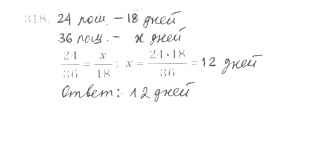 318. 24 лош. – 18 дней
36 лош. – x дней
24/36 = x/18; x = 24·18/36 = 12 дней
Ответ: 12 дней